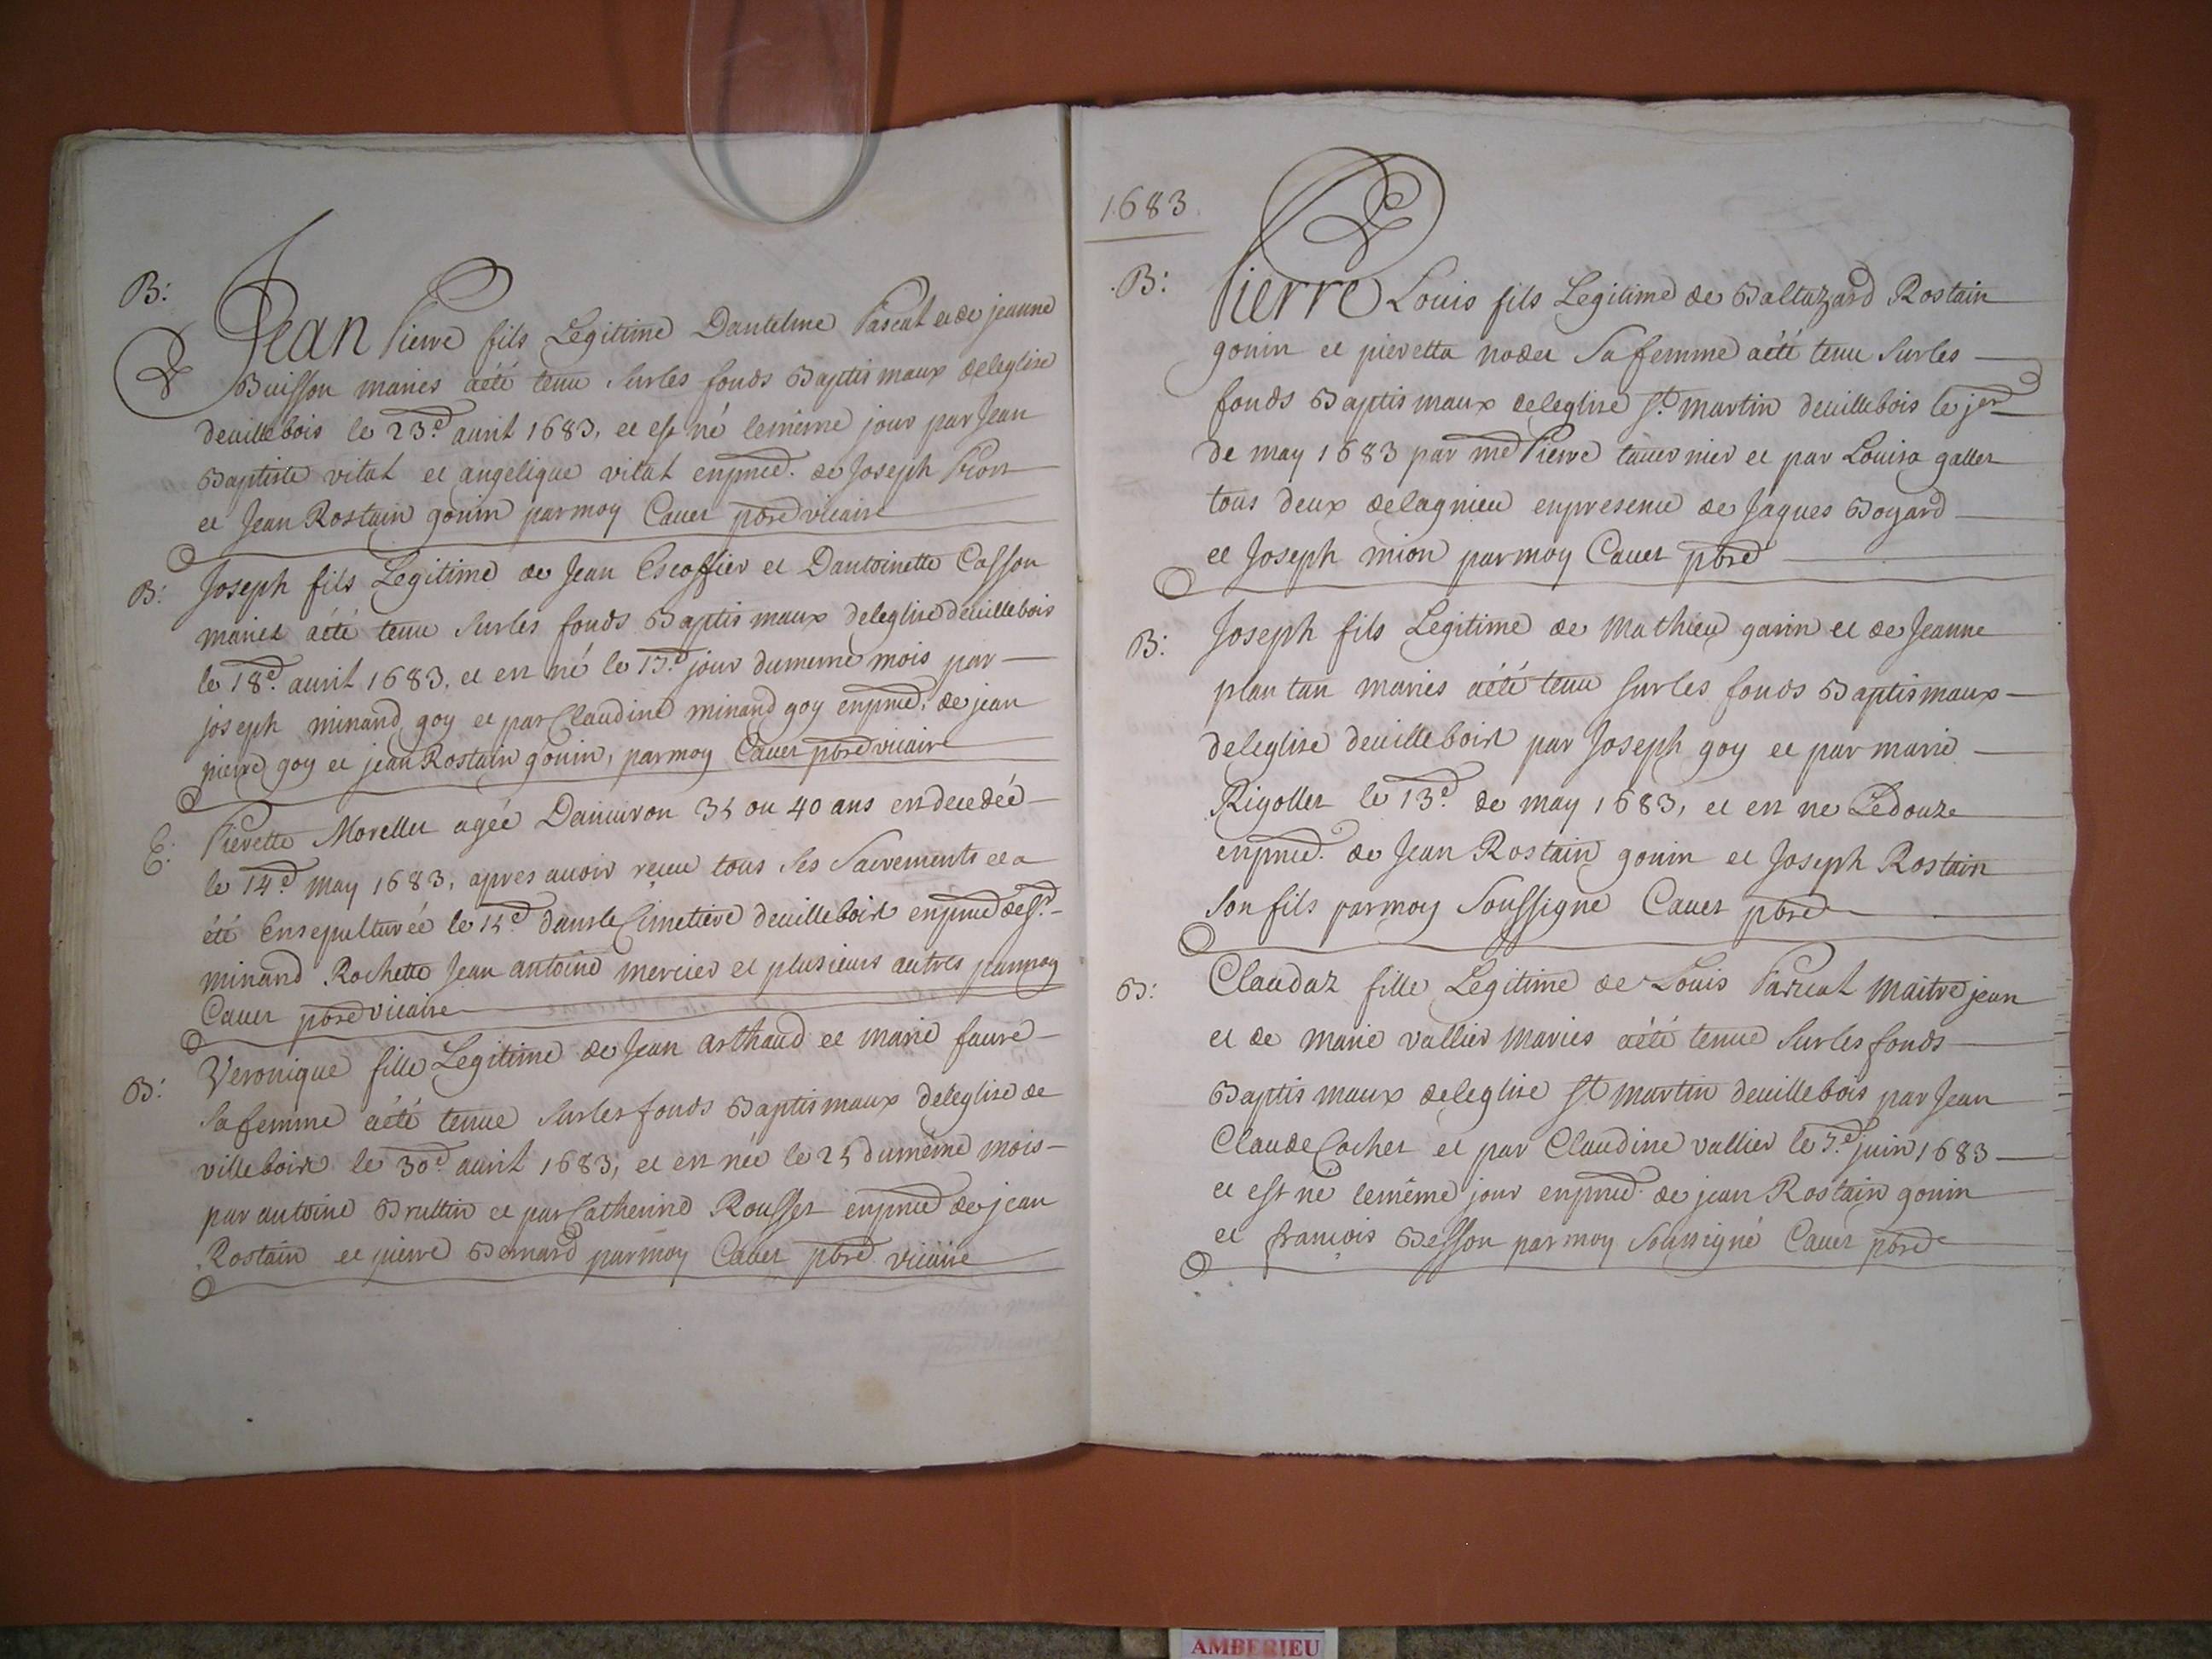 B:
Jean Pierre fils Legitime Dantelme Pascal et de jeanne
Buisson maries aété tenu surles fonds Baptismaux deleglise
deuillebois le 23e. auril 1683, et est né lemême jour par Jean
Baptiste vital et angelique vital enpnce. de Joseph Pion
et Jean Rostain gonin parmoy Cauet pbre vicaire
B:
Joseph fils Legitime de Jean Escoffier et Dantoinette Casson
mariés aété tenu surles fonds Baptismaux deleglise deuillebois
le 18e. auril 1683, et est né le 17e. jour dumeme mois par
joseph minand goy et par Claudine minand goy enpnce. de jean
pierre goy et jean Rostain gonin, parmoy Cauet pbre vicaire
E:
Pierette Morellet agée Denuiron 35 ou 40 ans est decedée
le 14e. may 1683, apres auoir reçue tous ses Sacrements et a
été Ensepulturée le 15e dans le Cimetiere deuillebois enpnce de Sr.
minand Rochette Jean antoine mercier et plusieurs autres parmoy
Cauet pbre vicaire
B:
Veronique fille Legitime de Jean arthaud et marie faure
sa femme aété tenue surles fonds Baptismaux deleglise de
villebois le 30e auril 1683, et est née le 25 dumême mois
par antoine Brullin et par Catherine Rousset enpnce de jean
Rostain et pierre Bernard parmoy Cauet pbre vicaire
1683
B:
Pierre Louis fils Legitime de Baltazard Rostain
gonin et pieretta nodet Sa femme aété tenu surles
fonds Baptismaux deleglise St. martin deuillebois le jer
de may 1683 par me Pierre tauernier et par Louisa gallet
tous deux delagnieu enpresence de Jaques Bogard
et Joseph mion parmoy Cauet pbre
B:
Joseph fils Legitime de Mathieu garin et de Jeanne
plantan maries aété tenu surles fonds Baptismaux
deleglise deuillebois par Joseph goy et par marie
Rigollet le 13e. de may 1683, et est ne Ledouze
enpnce. de Jean Rostain gonin et Joseph Rostain
Son fils parmoy Soussigne Cauet pbre
B:
Claudaz fille Legitime de Louis Pascal maitre jean
et de marie vallier maries aété tenue surles fonds
Baptismaux deleglise St martin deuillebois par Jean
Claude Cochet et par Claudine vallier le 7e. juin 1683
et est né lemême jour enpnce. de jean Rostain gonin
et francois Besson parmoy Soussigné Cauet pbre
AMBERIEU